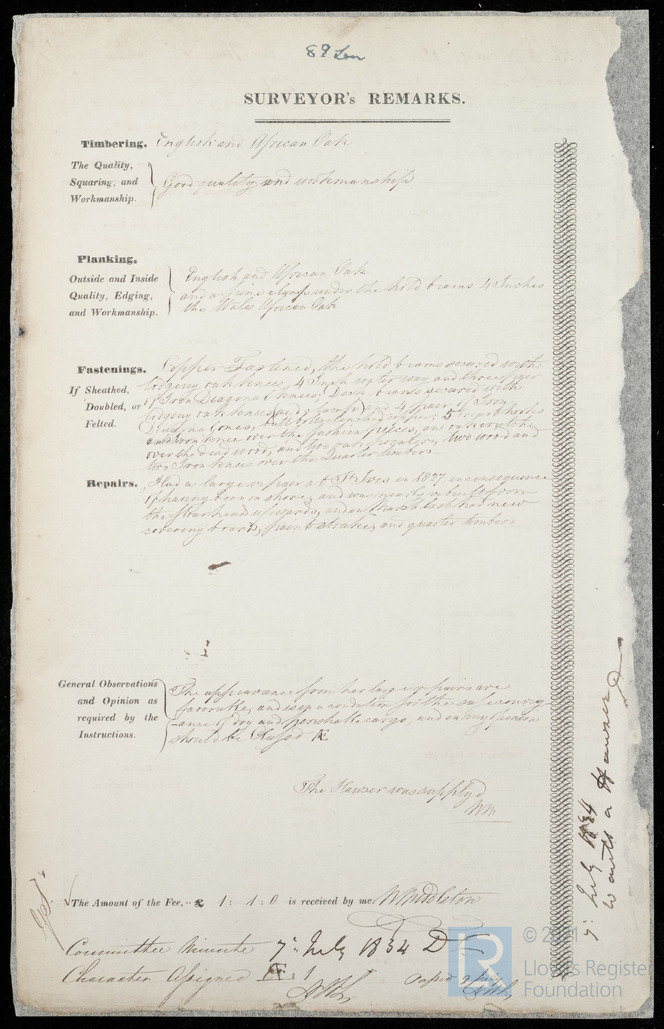 89 Lon
SURVEYOR's REMARKS.
Timbering. English and African Oak
The Quality, Squaring, and Workmanship. Good quality and workmanship
Planking.
Outside and Inside Quality, Edging, and Workmanship.
English and African Oak
and a pair clamp under the hold beams 4 Inches
the Wales African Oak
Fastenings. Copper Fastened, the hold beams secured with
If Sheathed, Doubled, or Felted.
lodging oak knees, 4 Inch and three pair
of Iron Diagonal knees, Deck beams secured with
lodging oak knees and clamps and 4 pair of Iron
Diagonal knees,
over the fashion pieces, one oak crutch
over the dead wood, and two oak pointers, two wood and
two Iron knees over the quarter timbers
Repairs. Had a large repair at St Ives in 1827 in consequence
of having been on shore, and was nearly rebuilt from
the floorheads upwards, and in March last had new
covering boards, paint strakes, and quarter timbers
General Observations and Opinion as required by the Instructions.
The appearance from her large repairs are
favorable, and is in a condition for the safe convey-
-ance of dry and perishable cargo, and in my opinion
should be Classed Æ
The Hawser was supplyd
WM
The Amount of the Fee,.. £ 1 : 1 : 0 is received by me, W Middleton
Committee Minute 7th July 1834
Character Assigned Æ : 1
7th July 1834
wants a Hawser
© 2021
LR
Lloyd's Register
Foundation